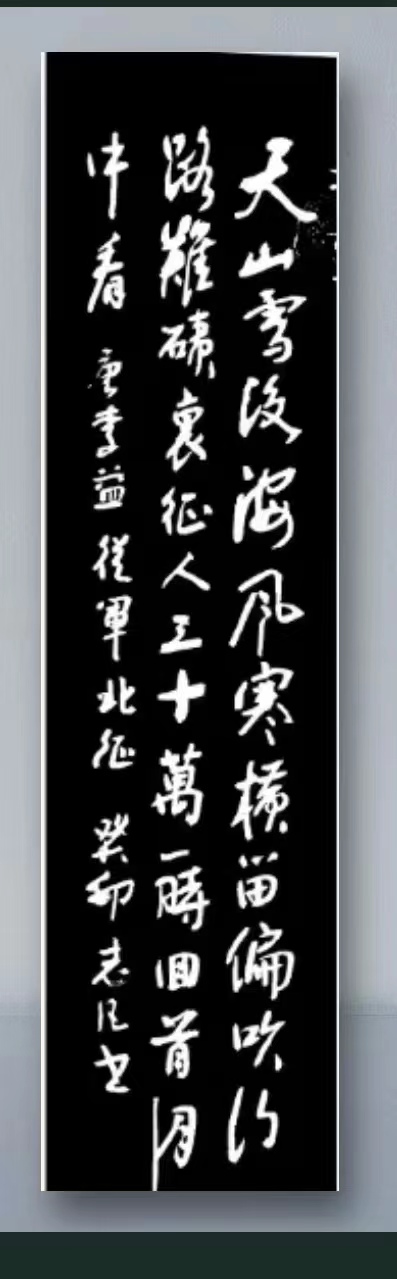 天山雪後海風寒橫笛偏吹行
路難磧裏征人三十萬一時回首月
中看 唐李益從軍北征 癸卯志民書